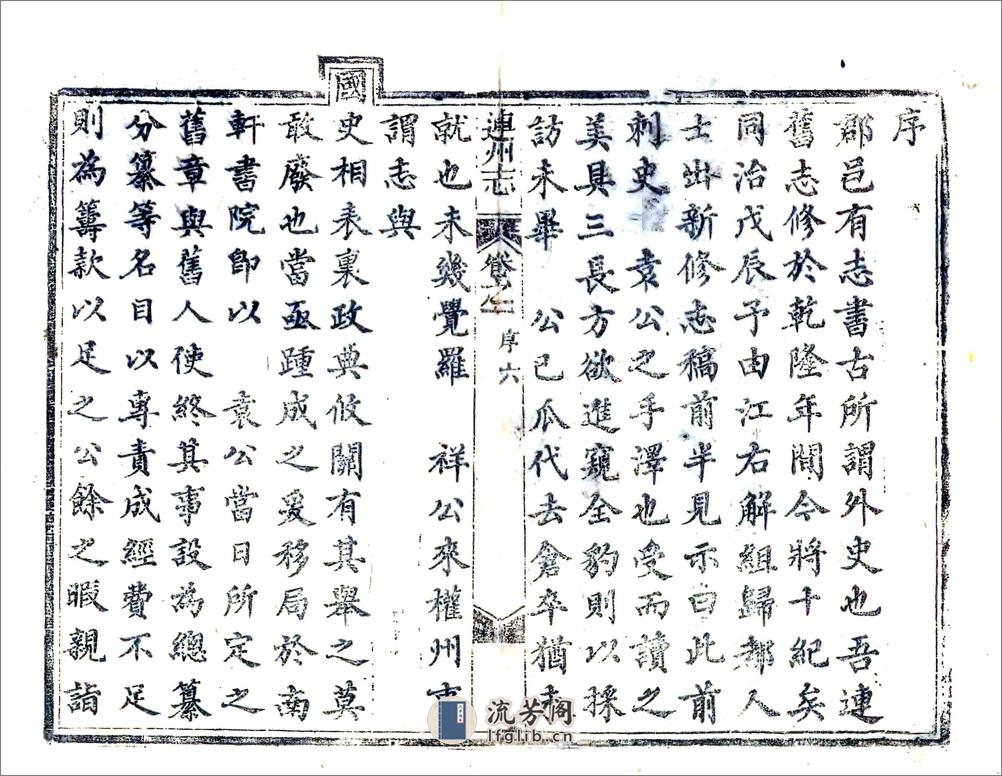 序
郡邑有志書古所謂外史也吾連
舊志修於乾隆年間今將十紀矣
同治戊辰予由江右解組歸都人
士出新修志稿前半見示曰此前
刺史 袁公之手澤也受而讀之
美具三長方欲進窺全豹則以採
訪未畢 公已瓜代去倉卒猶未
連州志 序 六
就也未幾覺羅 祥公來權州
謂志與
國
史相表裏政典攸關有其舉之莫
敢廢也當亟踵成之爰移局於南
軒書院即以 袁公當日所定之
舊章與舊人使終其事設為總纂
分纂等名目以專責成經費不足
則為籌款以足之公餘之暇親詣
流芳阁
lfglib.cn